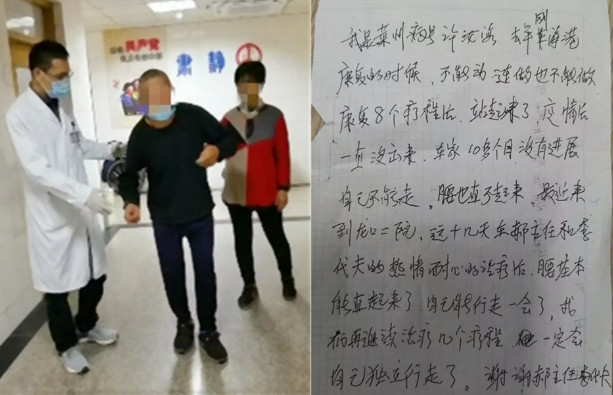 共产党
肃静
我是莱州病号
康复的时候，不能动 连做也不能做
康复8个疗程后，站起来了 疫情后
一直没出来，在家10多个月没有进展
自己不能走，腰也直不起来，最近来
到龙口二院，这十几天在郝主任和李
代夫的热情耐心的治疗后，腰基本
能直起来了 自己能行走一会了，我
再继续治疗几个疗程 一定会
自己独立行走了。谢谢郝主任